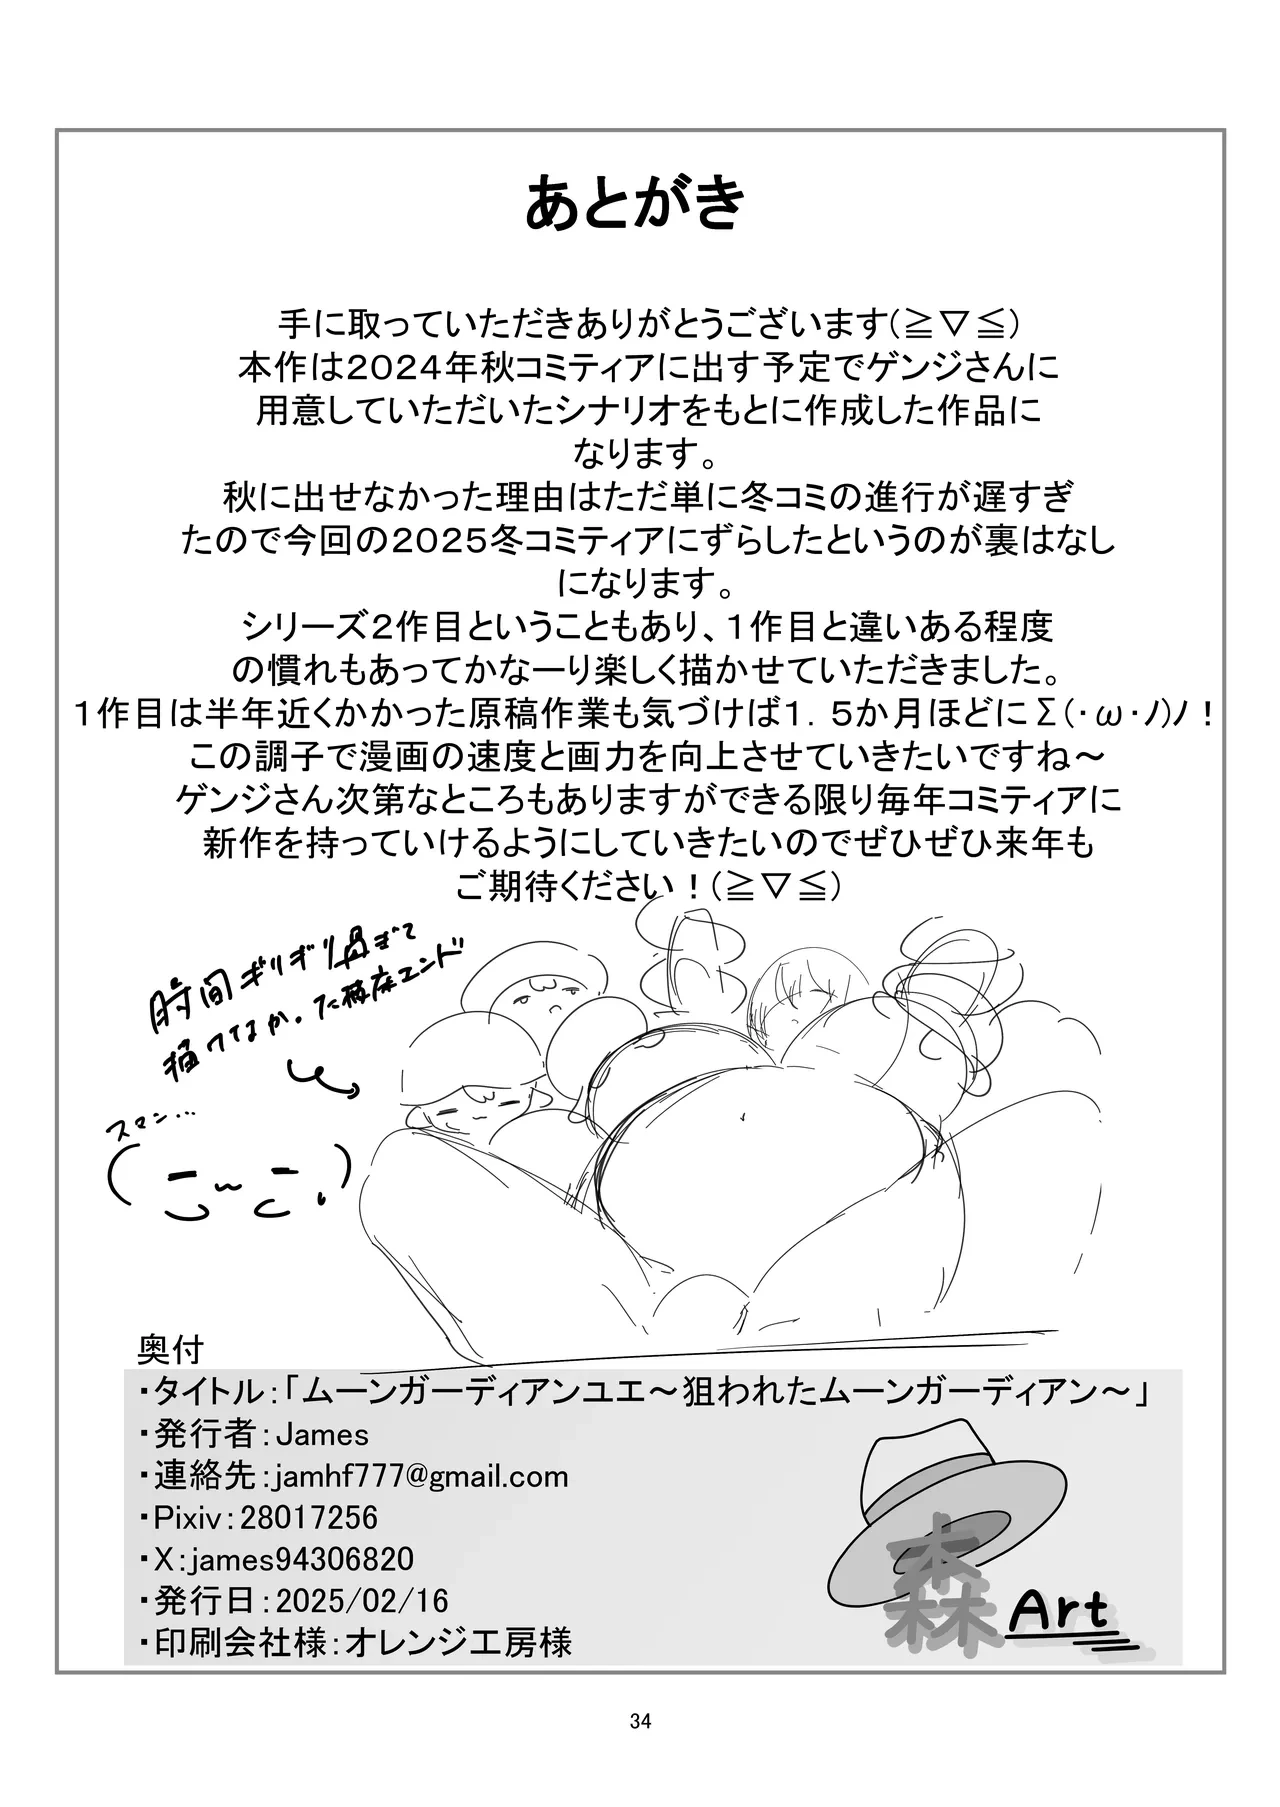 あとがき
手に取っていただきありがとうございます(≧▽≦)
本作は２０２４年秋コミティアに出す予定でゲンジさんに
用意していただいたシナリオをもとに作成した作品に
なります。
秋に出せなかった理由はただ単に冬コミの進行が遅すぎ
たので今回の２０２５冬コミティアにずらしたというのが裏はなし
になります。
シリーズ２作目ということもあり、１作目と違いある程度
の慣れもあってかなーり楽しく描かせていただきました。
１作目は半年近くかかった原稿作業も気づけば１．５か月ほどにΣ(･ω･ﾉ)ﾉ！
この調子で漫画の速度と画力を向上させていきたいですね～
ゲンジさん次第なところもありますができる限り毎年コミティアに
新作を持っていけるようにしていきたいのでぜひぜひ来年も
ご期待ください！(≧▽≦)
時間ギリギリ過ぎて
描けなかった秘蔵エンド
スマン…
奥付
・タイトル：「ムーンガーディアンユエ～狙われたムーンガーディアン～」
・発行者：James
・連絡先：jamhf777@gmail.com
・Pixiv：28017256
・X：james94306820
・発行日：2025/02/16
・印刷会社様：オレンジ工房様
森Art
34